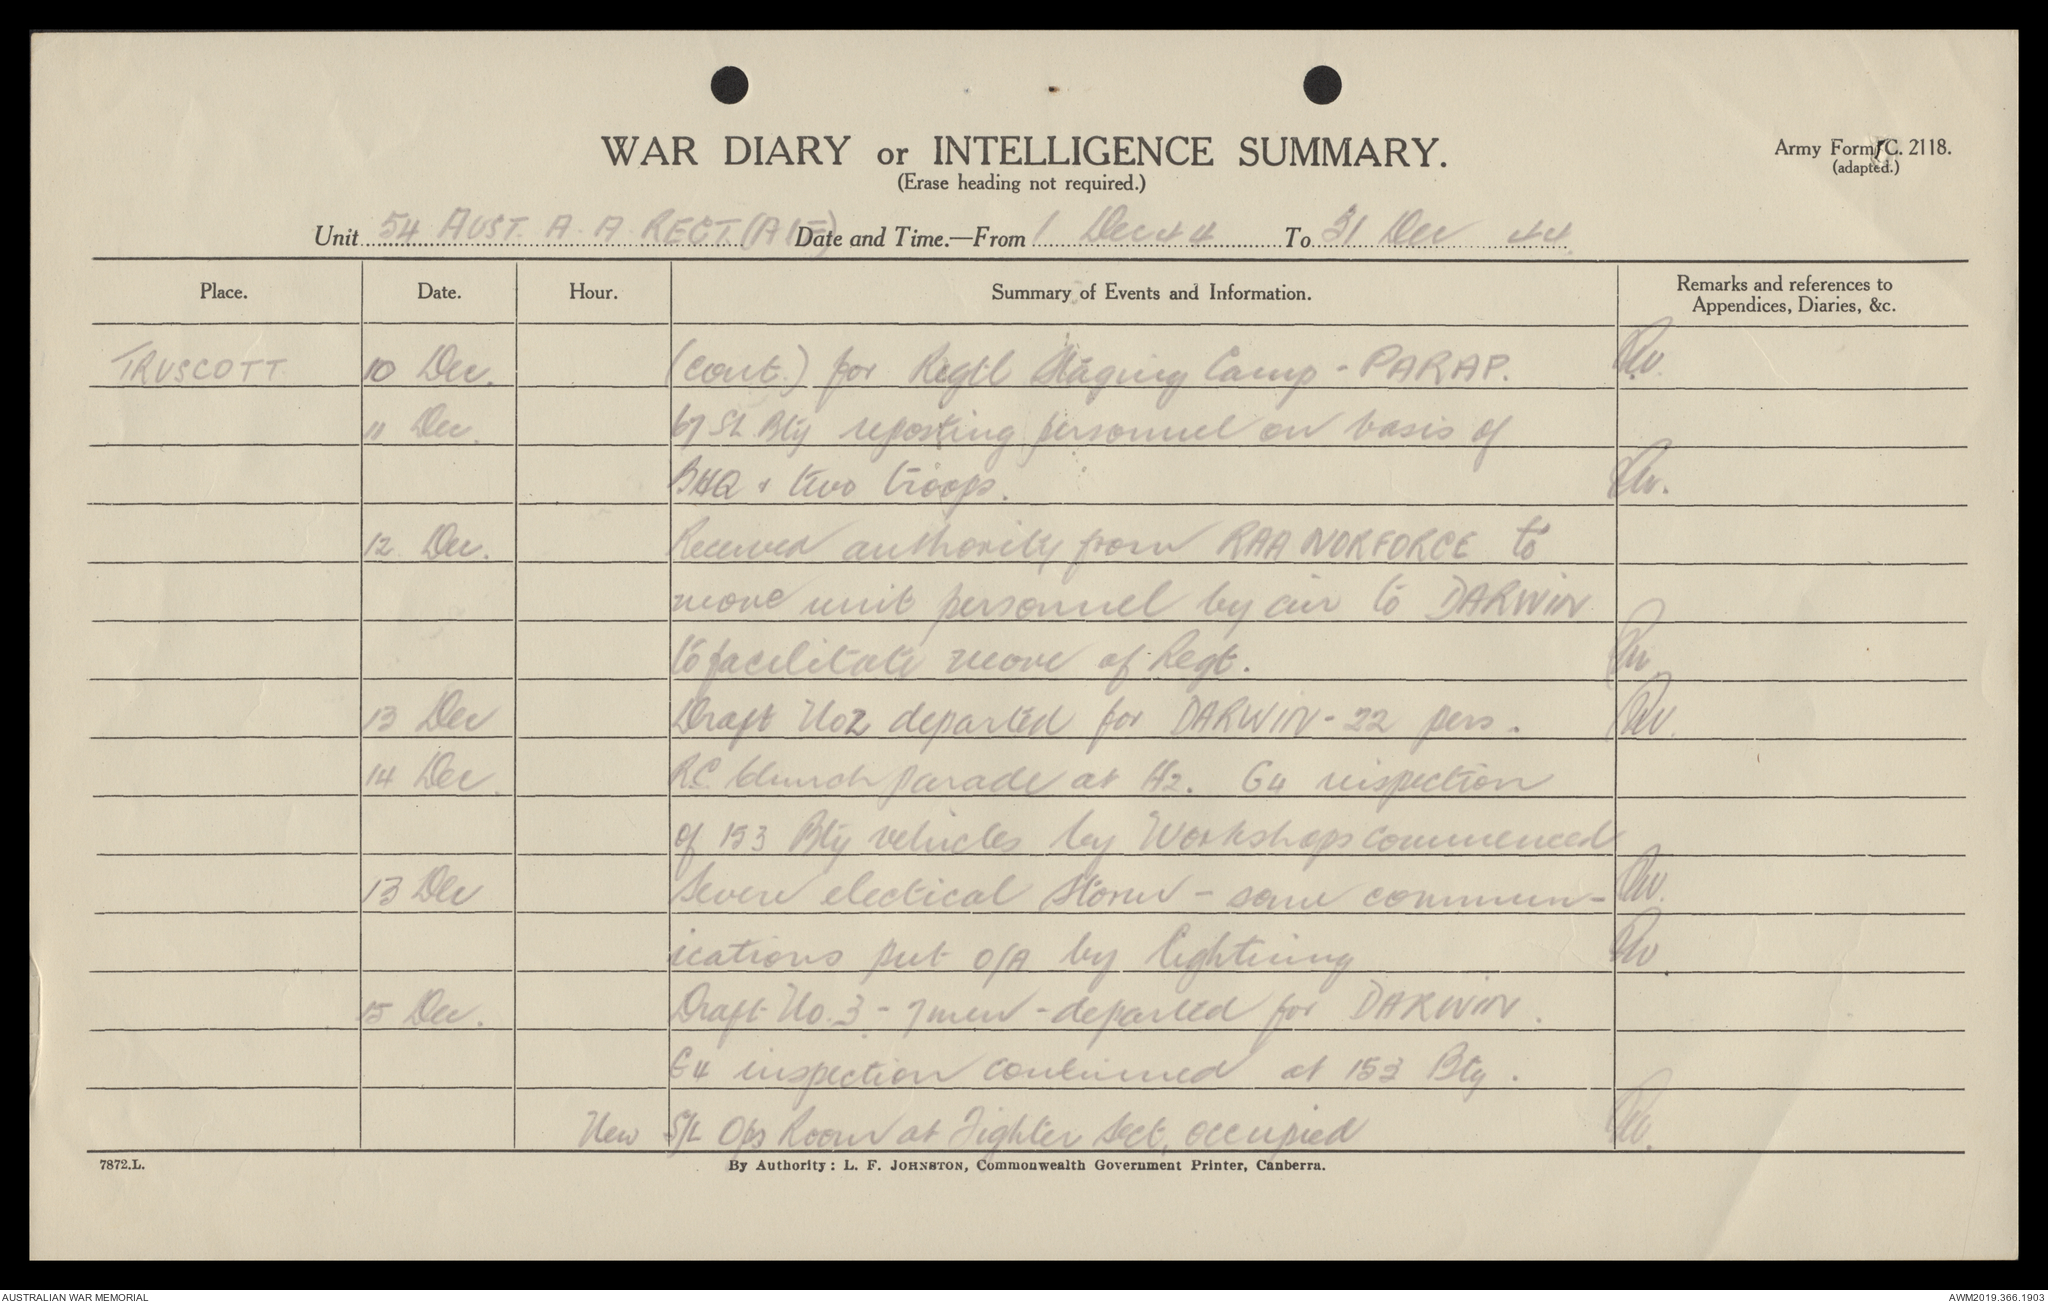 WAR DIARY or INTELLIGENCE SUMMARY.
(Erase heading not required.)
Army Form C. 2118.
(adapted.)
Unit 54 AUST. A. A REGT. (AIF) Date and Time.—From 1 Dec 44 To 31 Dec 44
Place. Date. Hour. Summary of Events and Information. Remarks and references to
Appendices, Diaries, &c.
TRUSCOTT 10 Dec. (cont.) for Regtl Staging Camp - PARAP.
11 Dec. 67 SL Bty reposting personnel on basis of
BHQ & two troops.
12 Dec. Received authority from RAA NORFORCE to
move unit personnel by air to DARWIN
to facilitate move of Regt.
13 Dec Draft No2 departed for DARWIN - 22 pers.
14 Dec. RC Church parade at H2. G4 inspection
of 153 Bty vehicles by Workshops commenced
13 Dec Severe electical storm - some commun-
ications put O/A by lightining
15 Dec. Draft No. 3 - 7 men - departed for DARWIN.
G4 inspection continued at 153 Bty.
New S/L Ops Room at Fighter Sect. occupied
7872.L.
By Authority: L. F. JOHNSTON, Commonwealth Government Printer, Canberra.
AUSTRALIAN WAR MEMORIAL
AWM2019.366.1903